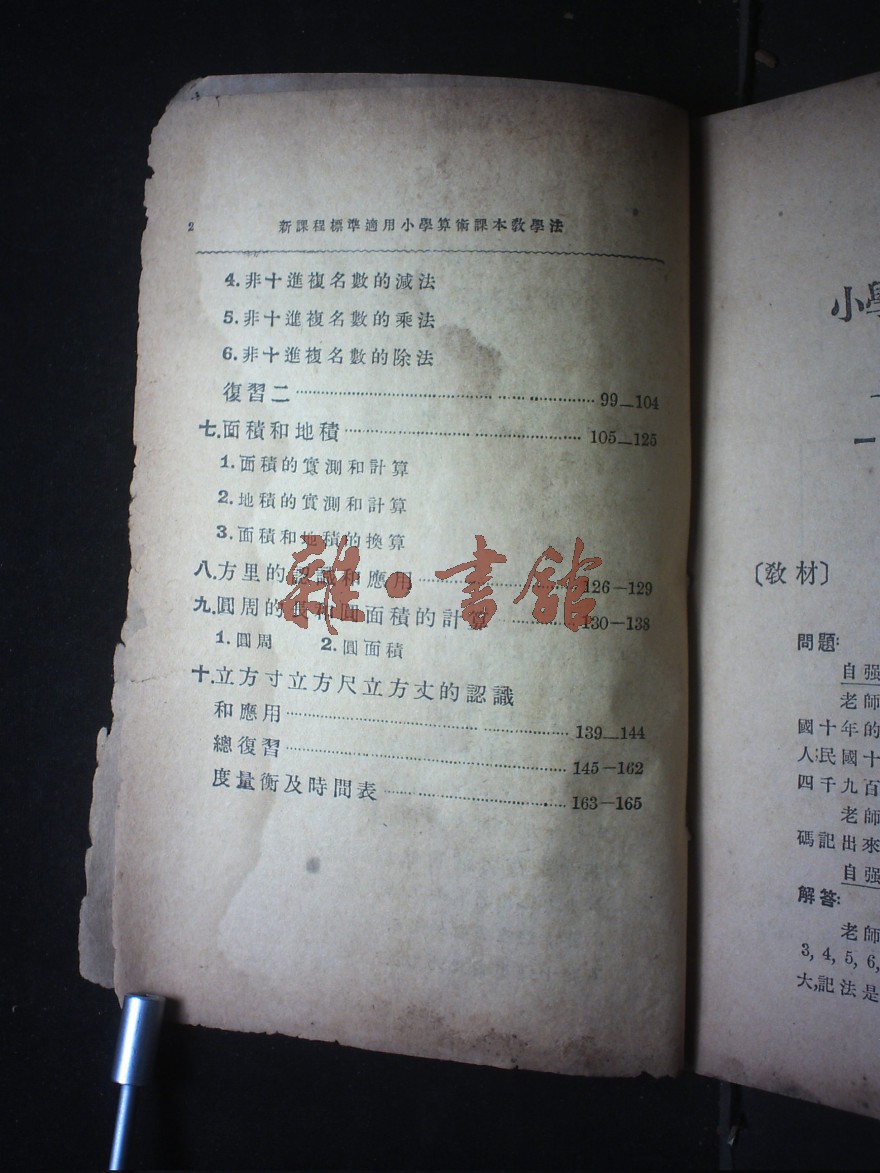 2 新課程標準適用小學算術課本敎學法
4.非十進複名數的減法
5.非十進複名數的乘法
6.非十進複名數的除法
復習二……99—104
七.面積和地積……105—125
1.面積的實測和計算
2.地積的實測和計算
3.面積和地積的換算
八.方里的認識和應用……126—129
九.圓周的長和圓面積的計算……130—138
1.圓周 2.圓面積
十.立方寸立方尺立方丈的認識
和應用……139—144
總復習……145—162
度量衡及時間表……163—165
雜·書館
小學
一
〔敎材〕
問題:
自强
老師
國十年的
人民國十
四千九百
老師
碼記出來
自强
解答:
老師
3, 4, 5, 6,
大,記法是